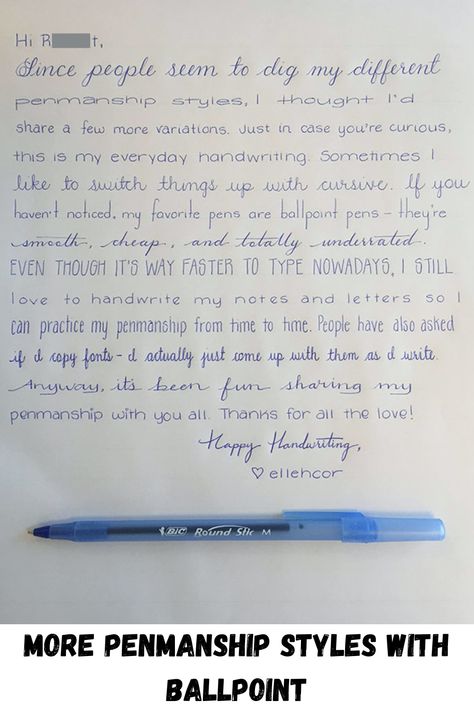 Hi R t,
Since people seem to dig my different
penmanship styles, I thought I'd
share a few more variations. Just in case you're curious,
this is my everyday handwriting. Sometimes I
like to switch things up with cursive. If you
haven't noticed, my favorite pens are ballpoint pens - they're
smooth, cheap, and totally underrated.
EVEN THOUGH IT'S WAY FASTER TO TYPE NOWADAYS, I STILL
love to handwrite my notes and letters so I
can practice my penmanship from time to time. People have also asked
if I copy fonts - I actually just come up with them as I write.
Anyway, it's been fun sharing my
penmanship with you all. Thanks for all the love!
Happy Handwriting,
♡ ellehcor
BIC Round Stic M
MORE PENMANSHIP STYLES WITH
BALLPOINT